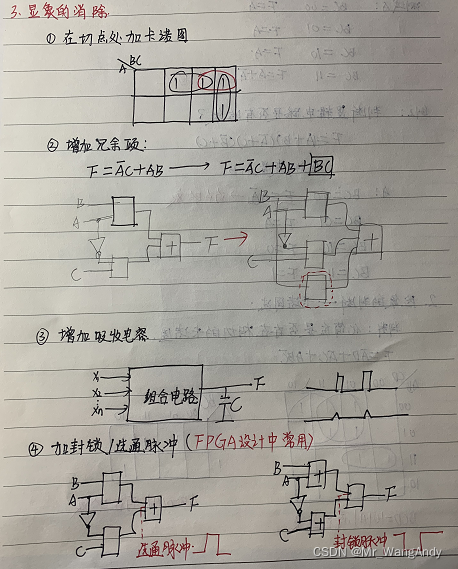 3. 显象的消除
① 在切点处加卡诺图
BC
A
1 1 1
1
② 增加冗余项:
F=A̅C+AB → F=A̅C+AB+BC
B
A
C
+
F
B
A
C
+
③ 增加吸收电容
X₁
X₂
Xn
组合电路
F
C
④ 加封锁/选通脉冲(FPGA设计中常用)
B
A
C
+
F
选通脉冲:
B
A
C
+
+
F
封锁脉冲
CSDN @Mr_WangAndy